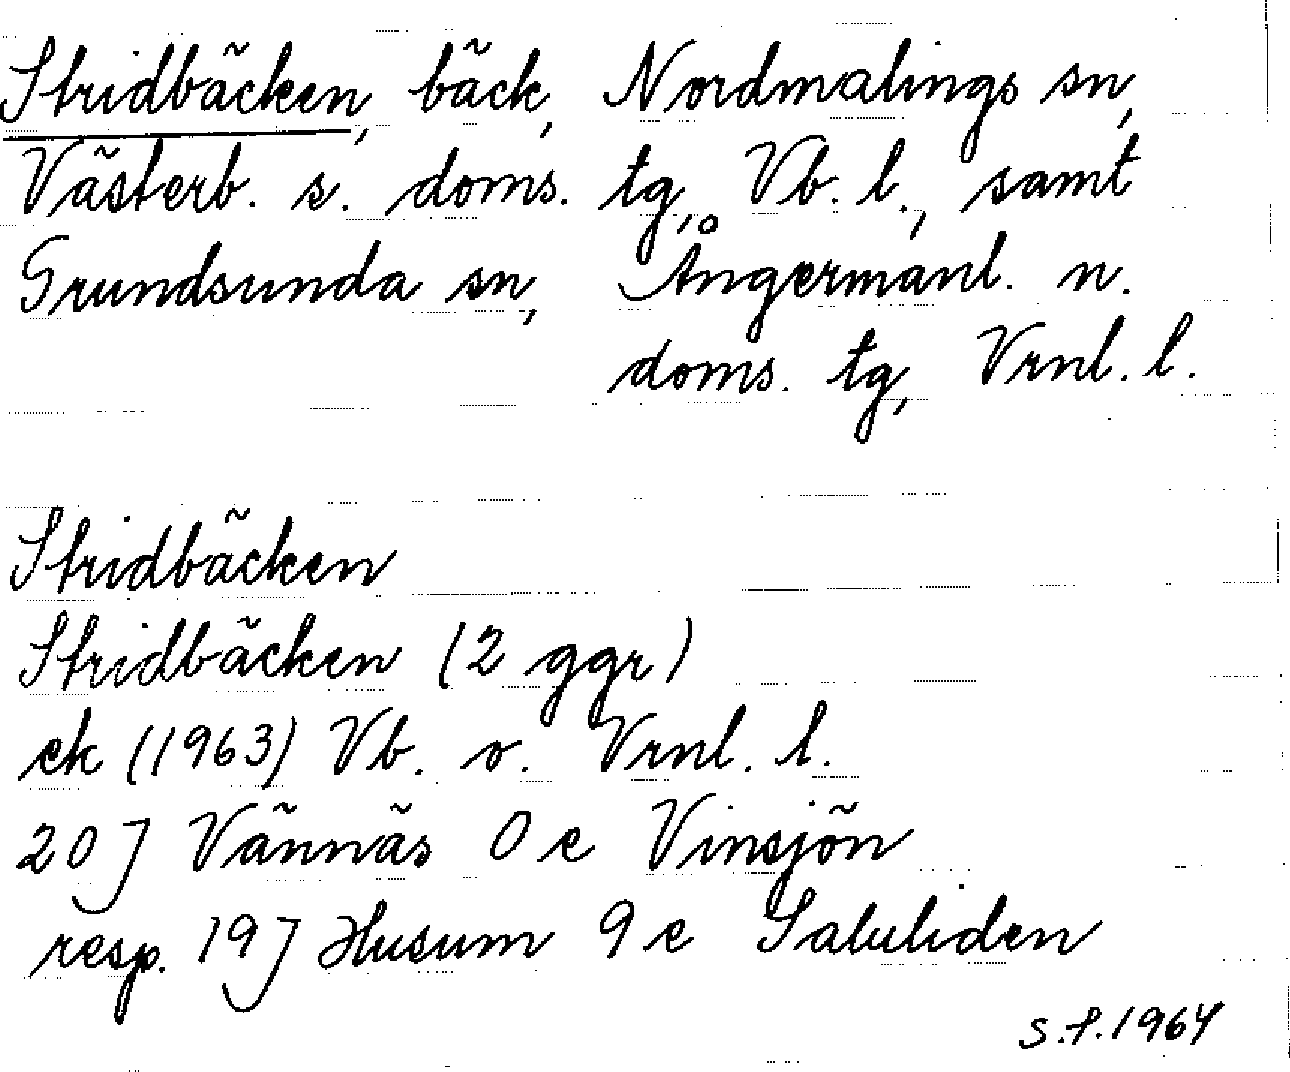 Stridbäcken, bäck, Nordmalings sn,
Västerb. s. doms. tg, Vb. l., samt
Grundsunda sn, Ångermanl. n.
doms. tg, Vrnl. l.
Stridbäcken
Stridbäcken (2 ggr)
ek (1963) Vb. o. Vrnl. l.
20 J Vännäs 0 e Vinsjön
resp. 19 J Husum 9 e Saluliden
S.F. 1964